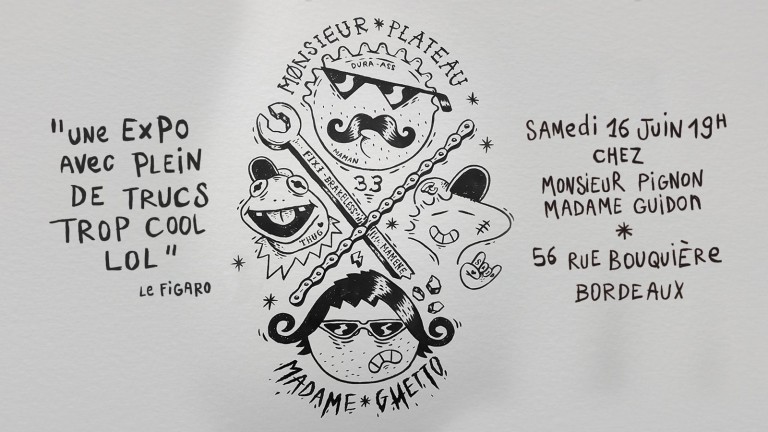 "UNE EXPO
AVEC PLEIN
DE TRUCS
TROP COOL
LOL"
LE FIGARO
MONSIEUR * PLATEAU
DURA-ASS
MAMAN
33
FIXI-BRAKELESS
THUG
MAMENE
MADAME * GHETTO
SAMEDI 16 JUIN 19H
CHEZ
MONSIEUR PIGNON
MADAME GUIDON
*
56 RUE BOUQUIÈRE
BORDEAUX